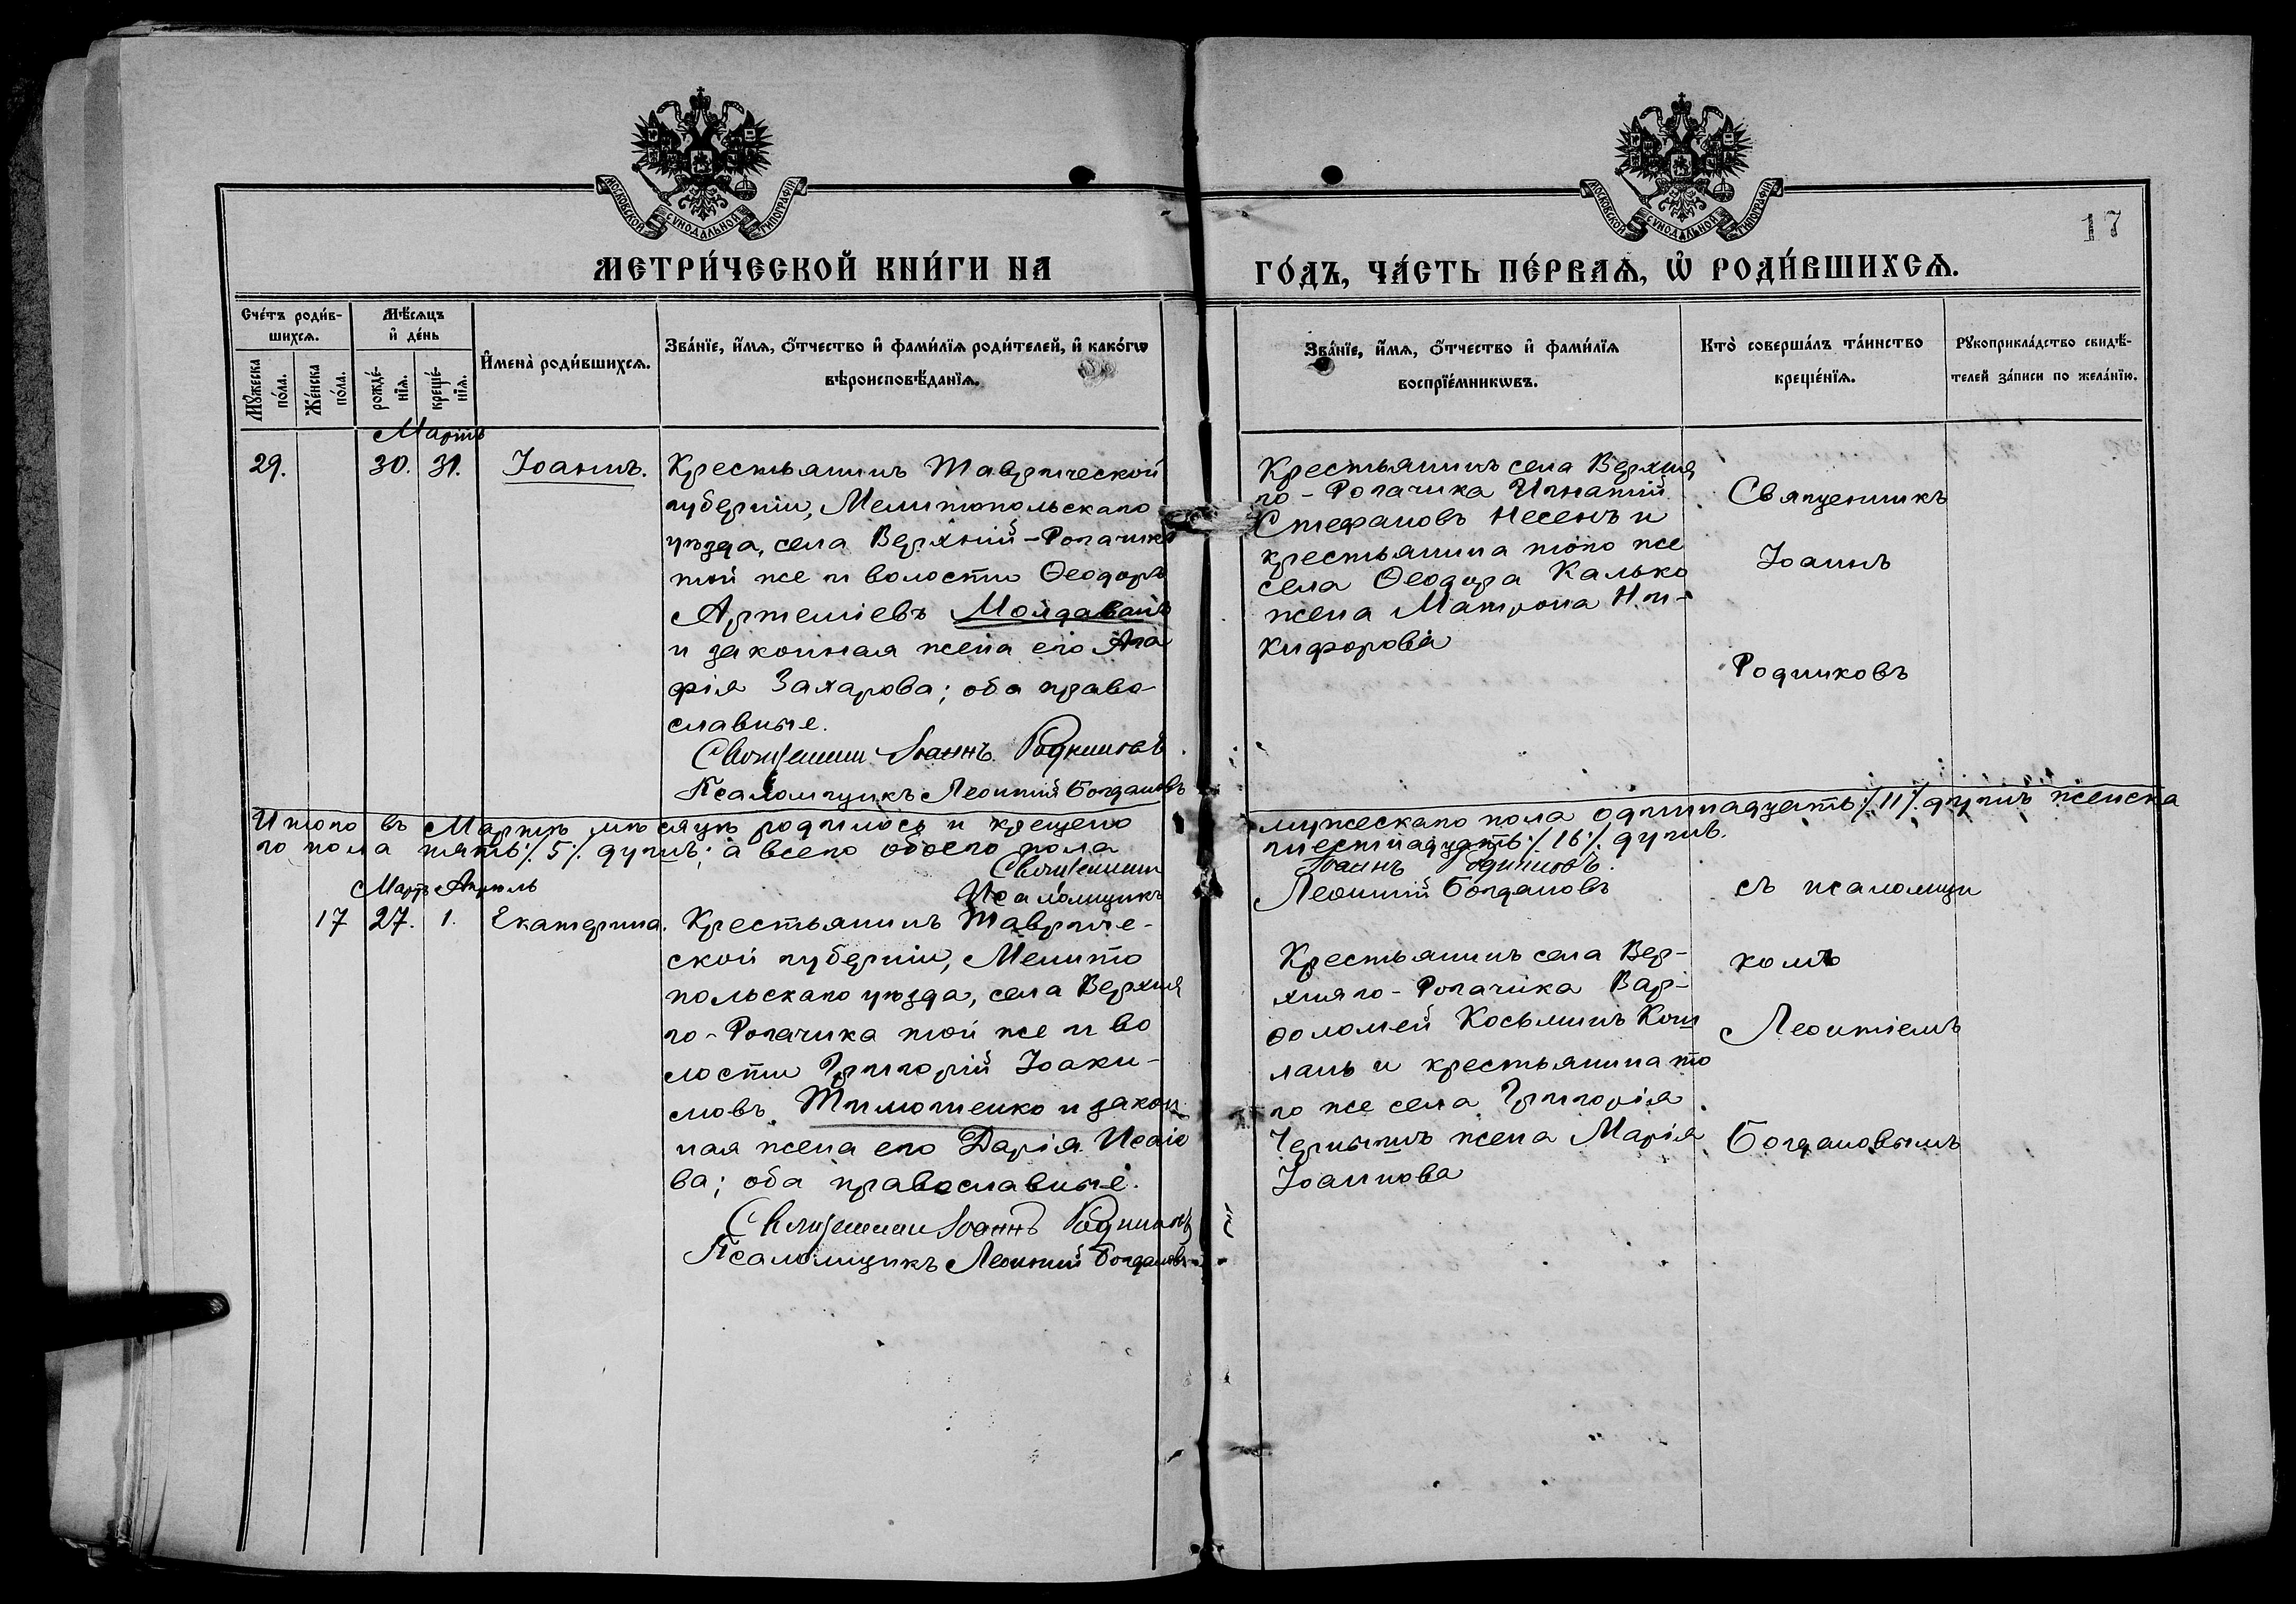 МОСКОВСКОЙ СѴНОДАЛЬНОЙ ТИПОГРАФІИ
МОСКОВСКОЙ СѴНОДАЛЬНОЙ ТИПОГРАФІИ
17
МЕТРИ́ЧЕСКОЙ КНИ́ГИ НА
ГО́ДЪ, ЧА́СТЬ ПЕ́РВАѦ, Ѽ РОДИ́ВШИХСѦ.
Сче́тъ роди́в-
шихсѧ.
Мꙋ́жеска по́ла.
Же́нска по́ла.
Мѣ́сѧцъ
и҆ де́нь
рожде́-
нїѧ.
креще́-
нїѧ.
И҆мена̀ роди́вшихсѧ.
Зва́нїе, и҆́мѧ, ѻ҆́тчество и҆ фами́лїѧ роди́телей, и҆ како́гѡ
вѣроисповѣ́данїѧ.
Зва́нїе, и҆́мѧ, ѻ҆́тчество и҆ фами́лїѧ
воспрїе́мникѡвъ.
Кто̀ соверша́лъ та́инство
креще́нїѧ.
Рꙋкоприкла́дство свидѣ́-
телей за́писи по жела́нїю.
Мартъ
29. 30. 31. Іоаннъ.
Крестьянинъ Таврической
губерніи, Мелитопольскаго
уѣзда, села Верхній-Рогачикъ
той же и волости Ѳеодоръ
Артеміевъ Молдаванъ
и законная жена его Ага
фія Захарова; оба право-
славные.
Священникъ Іоаннъ Родниковъ
Псаломщикъ Леонтій Богдановъ
Крестьянинъ села Верхня
го-Рогачика Игнатій
Стефановъ Несенъ и
крестьянина того же
села Ѳеодора Калько
жена Матрона Ни-
кифорова
Священникъ
Іоаннъ
Родниковъ
Итого въ Мартѣ мѣсяцѣ родилось и крещено
мужескаго пола одинадцать ٪ 11 ٪ душъ женска
го пола пять ٪ 5 ٪ душъ; а всего обоего пола
шестнадцать ٪ 16 ٪ душъ.
Священникъ Іоаннъ Родниковъ.
Псаломщикъ Леонтій Богдановъ
Мартъ Апрѣль
17 27. 1. Екатерина.
Крестьянинъ Тавриче-
ской губерніи, Мелито
польскаго уѣзда, села Верхня
го-Рогачика той же и во
лости Григорій Іоаки-
мовъ Тимошенко и закон
ная жена его Дарія Исаіо
ва; оба православные.
Священникъ Іоаннъ Родниковъ
Псаломщикъ Леонтій Богдановъ
Крестьянинъ села Вер-
хняго-Рогачика Вар-
ѳоломей Косьминъ Кош
лань и крестьянина то
го же села Григорія
Чернышъ жена Марія
Іоаннова
съ псаломщи
комъ
Леонтіемъ
Богдановымъ